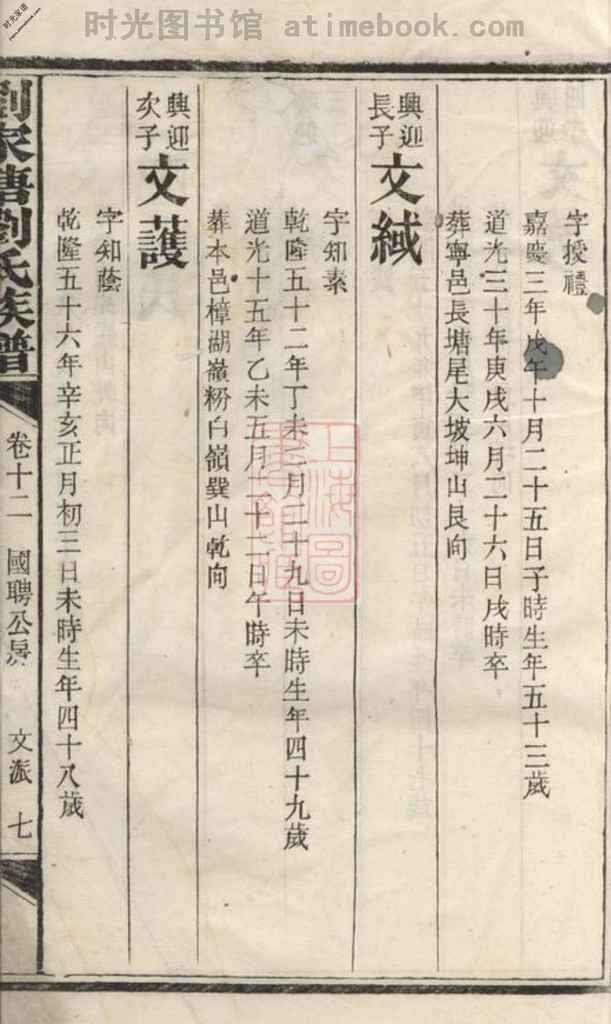 时光图书馆 atimebook.com
时光家谱
字授禮
嘉慶三年戊午十月二十五日子時生年五十三歲
道光三十年庚戌六月二十六日戌時卒
葬寧邑長塘尾大坡坤山艮向
興迎
長子
文緎
字知素
乾隆五十二年丁未二月二十九日未時生年四十九歲
道光十五年乙未五月二十二日午時卒
葬本邑樟湖嶺粉白嶺巽山乾向
興迎
次子
文護
字知蔭
乾隆五十六年辛亥正月初三日未時生年四十八歲
劉家塘劉氏族譜
卷十二
國聘公房
文派
七